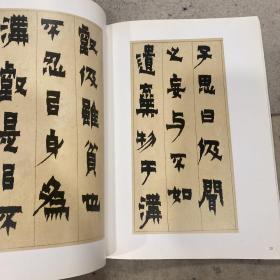 子思曰伋聞
之妄与不如
遺棄物于溝
壑伋雖貧也
不忍㠯身為
溝壑是㠯不